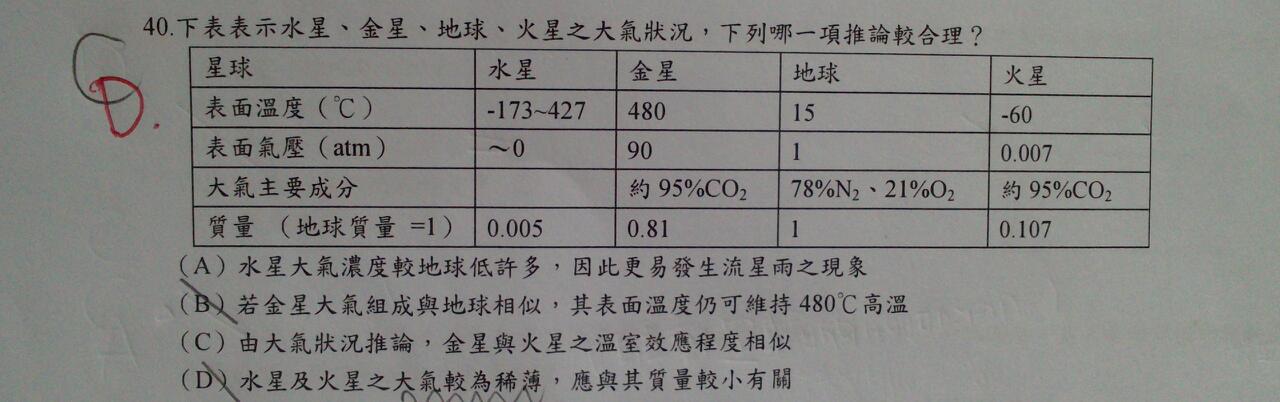 40.下表表示水星、金星、地球、火星之大氣狀況，下列哪一項推論較合理？
星球 水星 金星 地球 火星
表面溫度（℃） -173~427 480 15 -60
表面氣壓（atm） ～0 90 1 0.007
大氣主要成分 約 95%CO₂ 78%N₂、21%O₂ 約 95%CO₂
質量 （地球質量 =1） 0.005 0.81 1 0.107
C
D.
（A）水星大氣濃度較地球低許多，因此更易發生流星雨之現象
（B）若金星大氣組成與地球相似，其表面溫度仍可維持 480℃高溫
（C）由大氣狀況推論，金星與火星之溫室效應程度相似
（D）水星及火星之大氣較為稀薄，應與其質量較小有關